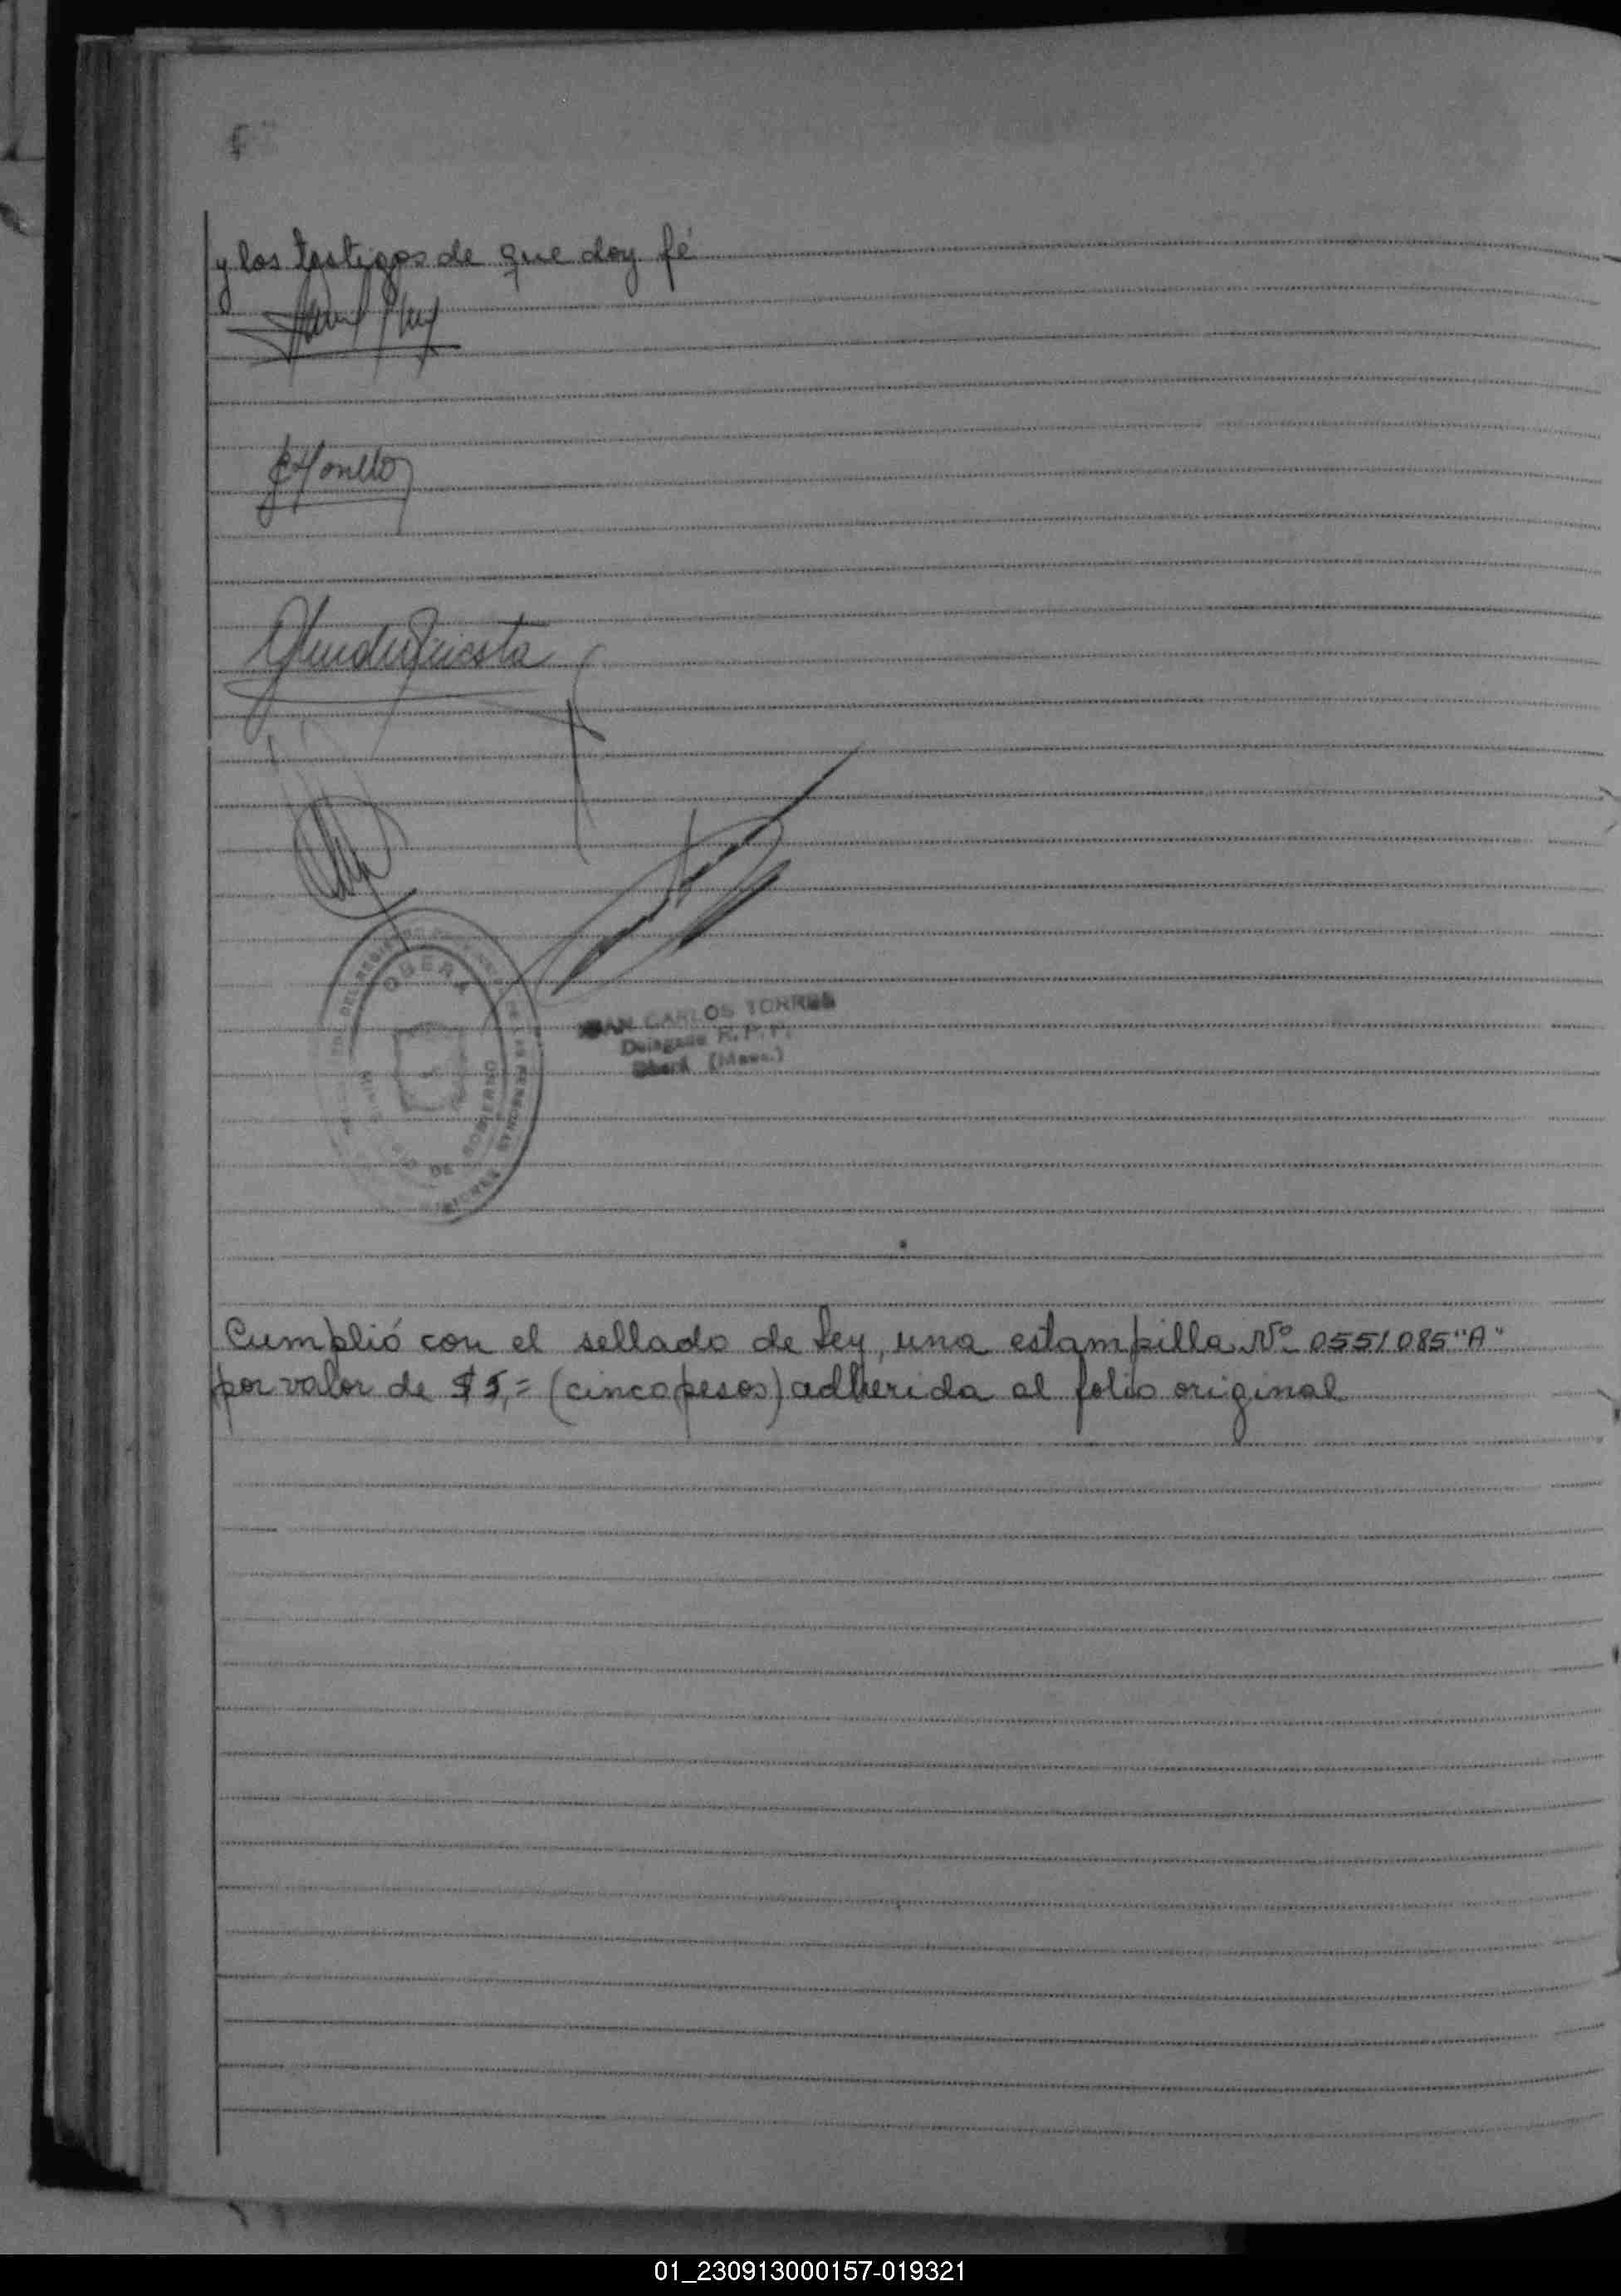 y los testigos de que doy fé
OBERA
DE GOBIERNO
CARLOS TORRES
Delegado R. P. P.
Oberá (Mnes.)
Cumplió con el sellado de Ley, una estampilla Nº 0551085 "A"
por valor de $ 5,= (cinco pesos) adherida al folio original
01_230913000157-019321